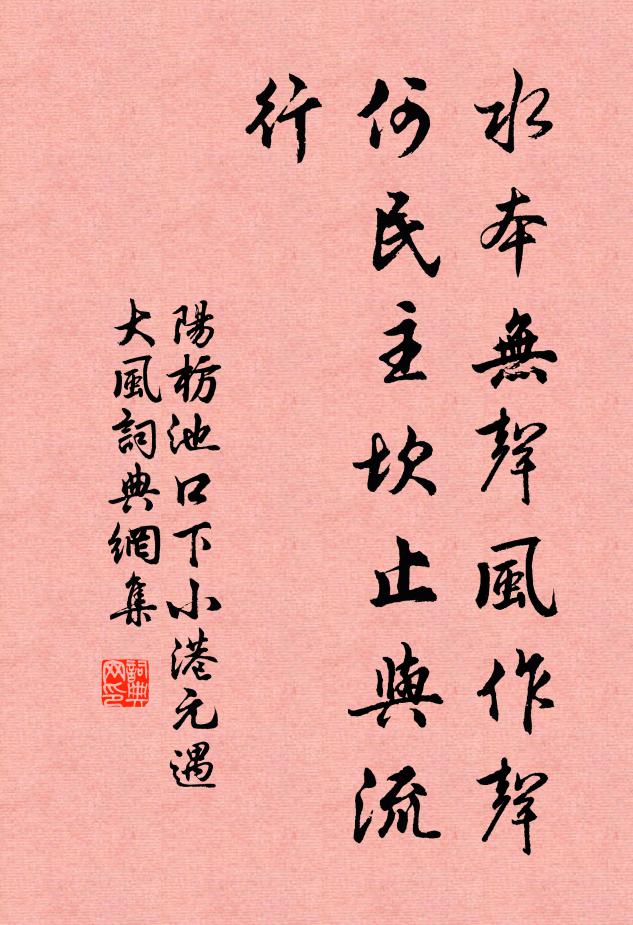 水本無聲風作聲
何民主坎止與流
行
陽枋池口下小港元遇
大風詞典網集
詞典
网印